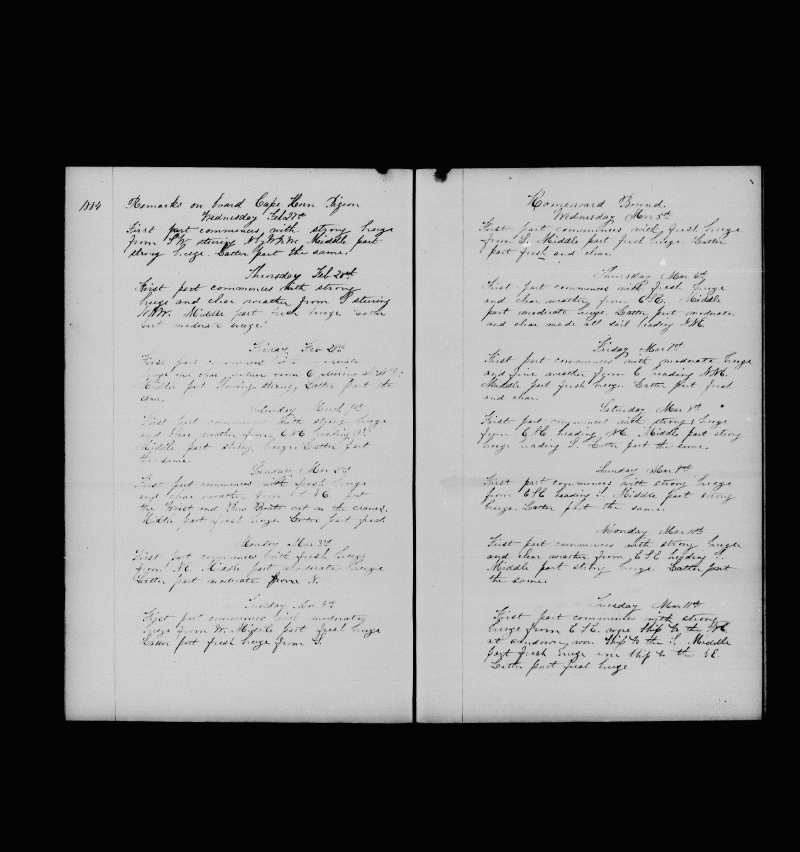 1884
Remarks on board Cape Horn Pigeon
Wednesday Feb 27th
First part commences with strong breeze
from SW steering N by WNW. Middle part
strong breeze. Latter part the same.
Thursday Feb 28th
First part commences with strong
breeze and clear weather from S steering
NNW. Middle part fresh breeze latter
part moderate breeze.
Friday Feb 29th
First part commences with moderate
breeze and clear weather from E steering
Middle part strong, Latter part the
same.
Saturday March 1st
First part commences with strong breeze
and clear weather from ENE heading N.
Middle part strong breeze. Latter part
the same.
Sunday Mar 2nd
First part commences with fresh breeze
and clear weather from ENE put
the Waist and Bow Boats out on the cranes.
Middle part fresh breeze Latter part fresh
Monday Mar 3rd
First part commences with fresh breeze
from NE. Middle part moderate breeze
Latter part moderate from N.
Tuesday Mar 4th
First part commences with moderate
breeze from W. Middle part fresh breeze
Latter part fresh breeze from S.
Homeward Bound.
Wednesday Mar 5th
First part commences with fresh breeze
from S. Middle part fresh breeze. Latter
part fresh and clear.
Thursday Mar 6th
First part commences with fresh breeze
and clear weather from ESE. Middle
part moderate breeze. Latter part moderate
and clear made all sail heading NNE.
Friday Mar 7th
First part commences with moderate breeze
and fine weather from E heading NNE.
Middle part fresh breeze Latter part fresh
and clear.
Saturday Mar 8th
First part commences with strong breeze
from ESE heading NE. Middle part strong
breeze heading S. Latter part the same.
Sunday Mar 9th
First part commences with strong breeze
from ESE heading S. Middle part strong
breeze. Latter part the same.
Monday Mar 10th
First part commences with strong breeze
and clear weather from ESE heading S.
Middle part strong breeze. Latter part
the same.
Tuesday Mar 11th
First part commences with strong
breeze from ESE. wore Ship to the NE.
at sundown wore Ship to the S. Middle
part fresh breeze wore ship to the NE
Latter part fresh breeze